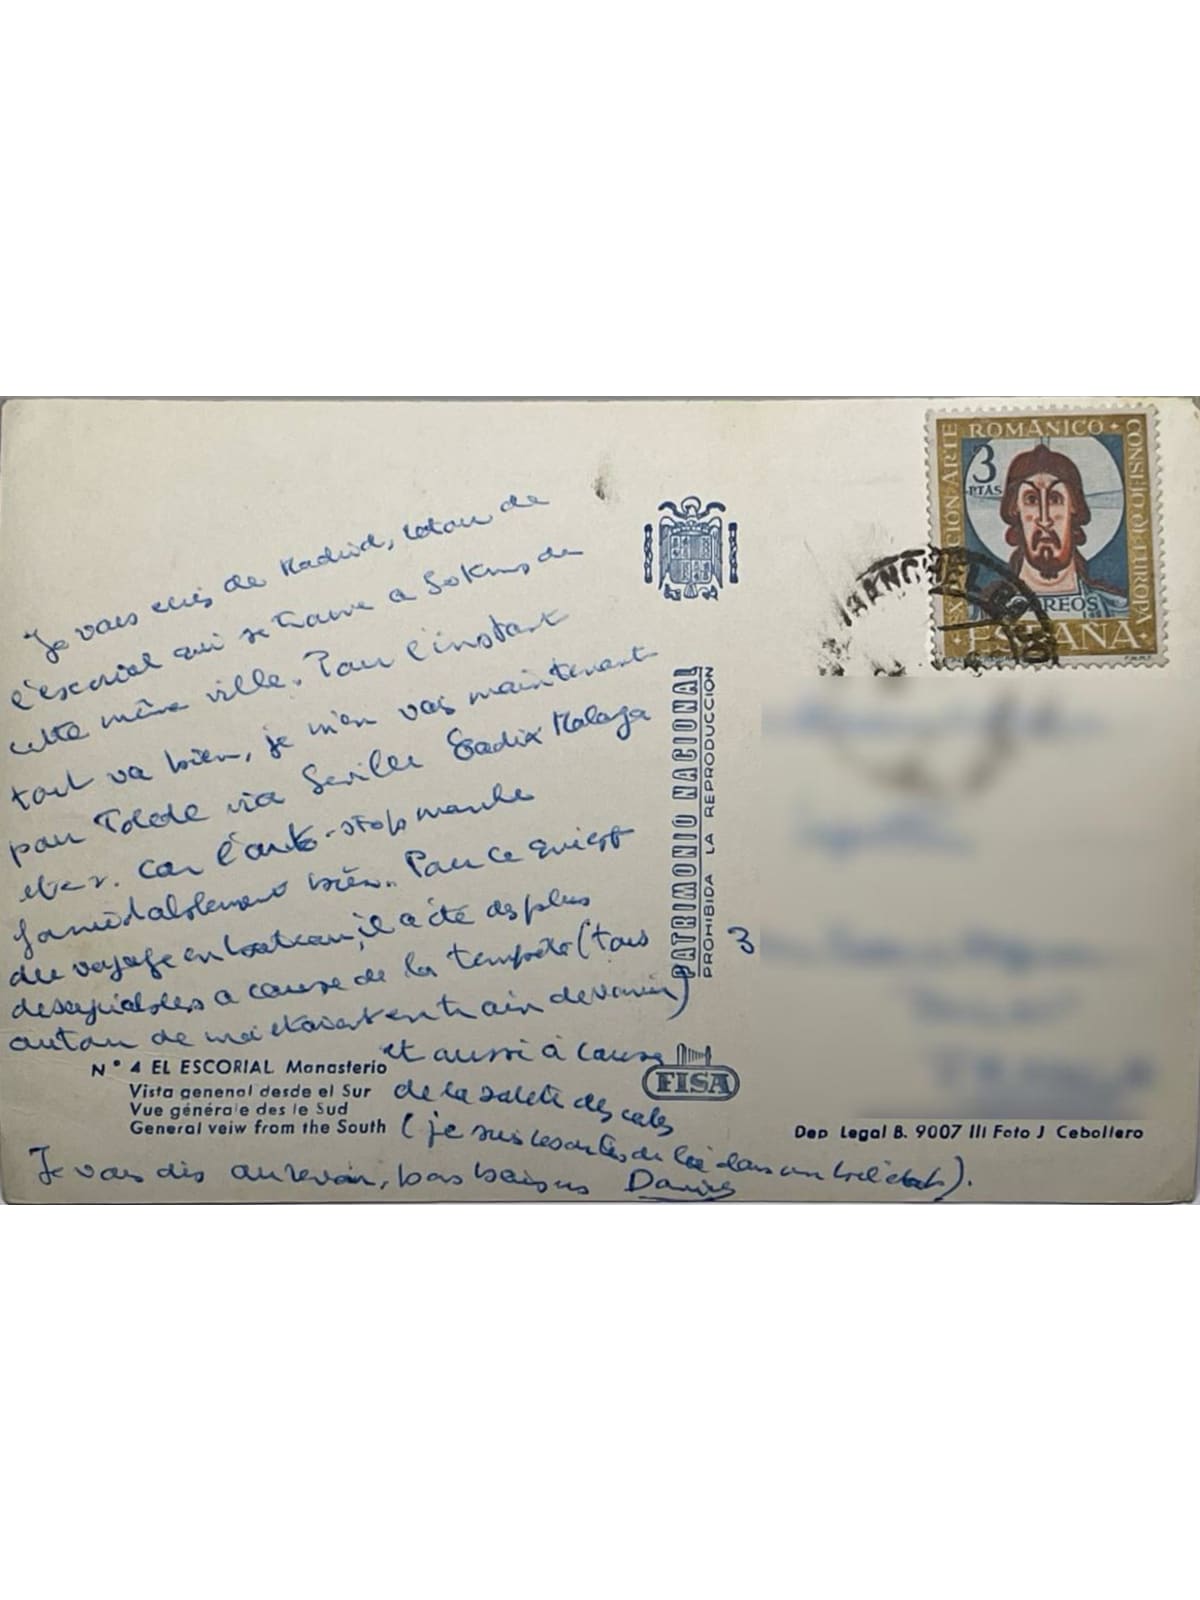 Je vous écris de Madrid, retour de
l'escorial qui se trouve a 50 kms de
cette même ville. Pour l'instant
tout va bien, je m'en vais maintenant
pour Tolede via Seville Cadix Malaga
etc. Car l'auto-stop marche
formidablement bien. Pour ce qui est
du voyage en bateau, il a été des plus
desagréables a cause de la tempête (tous
autour de moi étaient en train de vomir)
et aussi à cause
de la saleté des cales
(je suis de là dans un bel état).
Je vous dis au revoir, bons baisers
EXPOSICION ARTE ROMANICO · CONSEJO DE EUROPA
3 PTAS
CORREOS
·ESPAÑA·
PATRIMONIO NACIONAL
PROHIBIDA LA REPRODUCCIÓN
3
N° 4 EL ESCORIAL Monasterio
Vista general desde el Sur
Vue générale des le Sud
General veiw from the South
FISA
Dep Legal B. 9007 III Foto J Cebollero